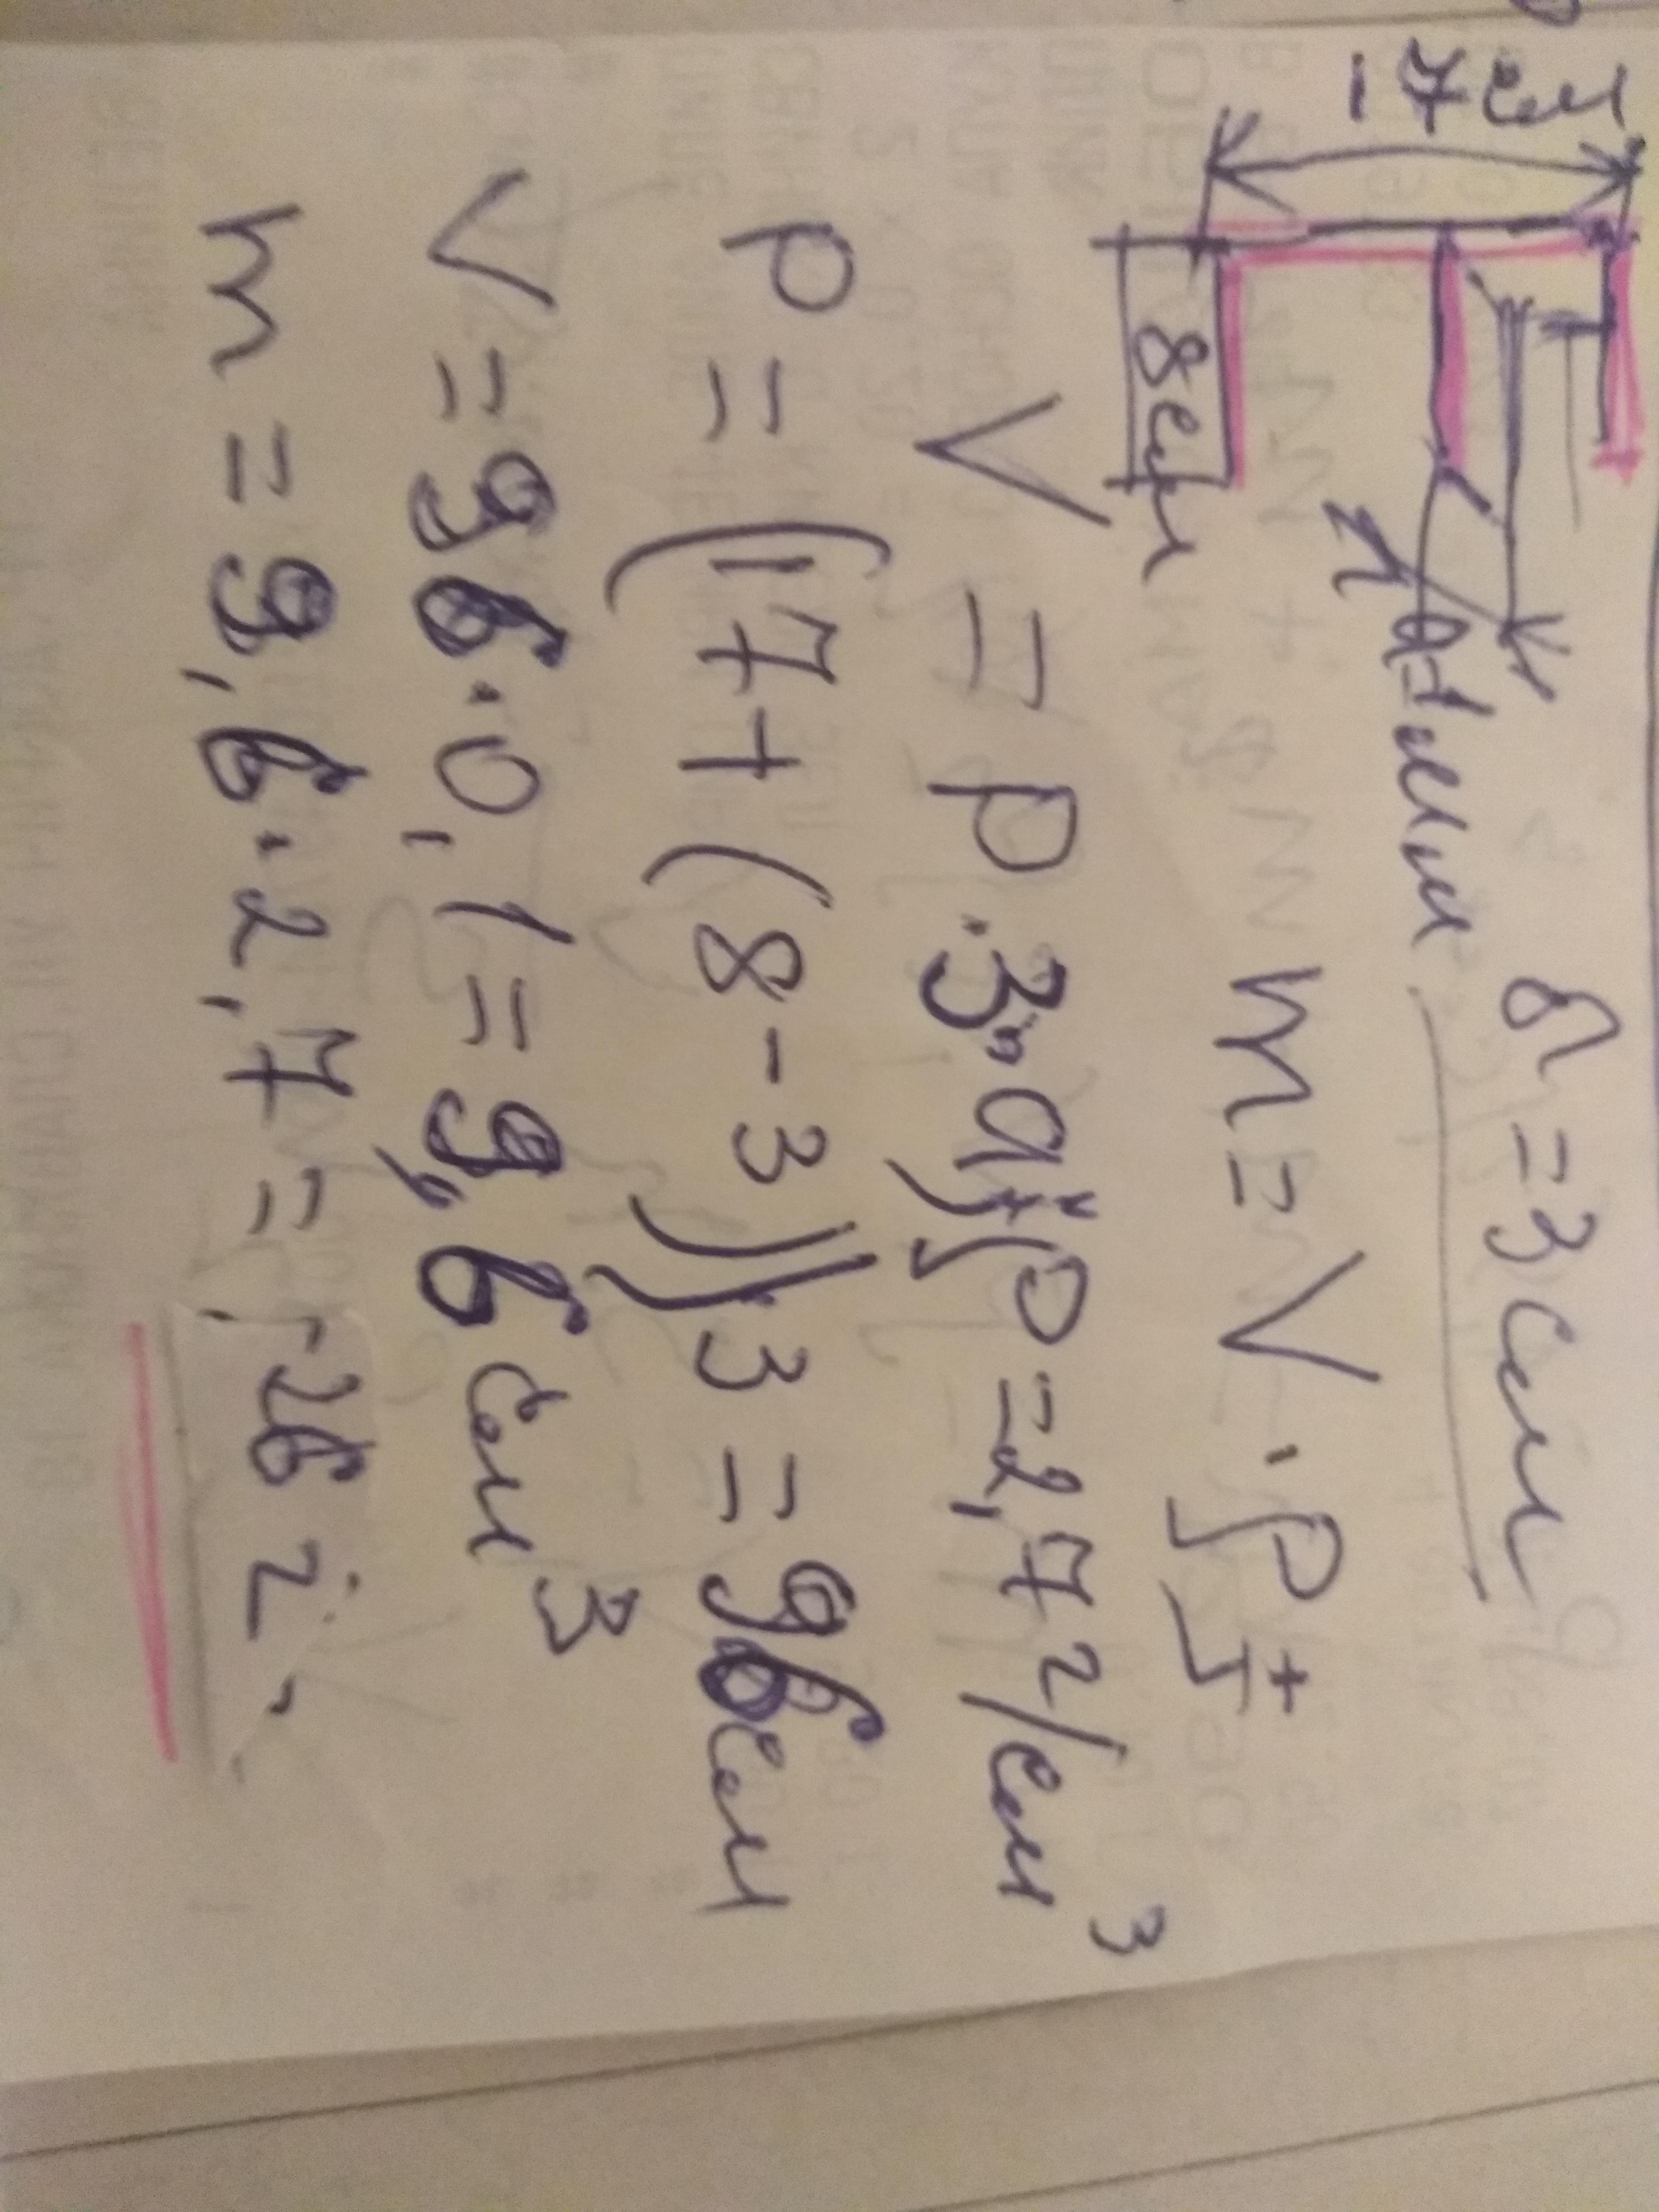 17 см
8 см
1 мм
δ = 3 см
m = V · ρ
V = P · 3 · a; ρ = 2,7 г/см³
P = (17 + (8 - 3)) 3 = 96 см
V = 96 · 0,1 = 9,6 см³
m = 9,6 · 2,7 = 26 г.